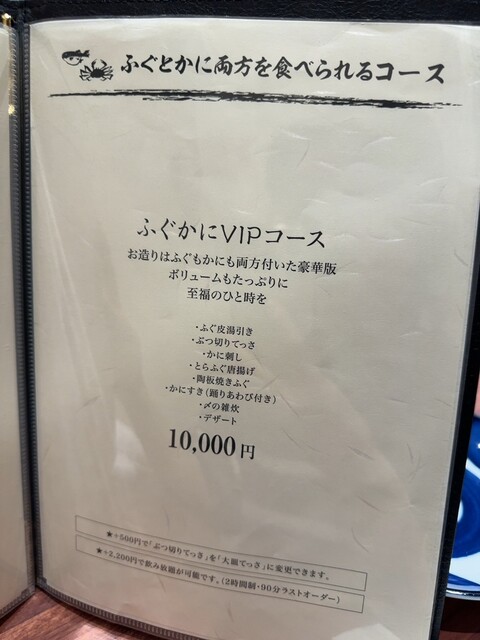 ふぐとかに両方を食べられるコース
ふぐかにVIPコース
お造りはふぐもかにも両方付いた豪華版
ボリュームもたっぷりに
至福のひと時を
・ふぐ皮湯引き
・ぶつ切りてっさ
・かに刺し
・とらふぐ唐揚げ
・陶板焼きふぐ
・かにすき(踊りあわび付き)
・〆の雑炊
・デザート
10,000円
★+500円で「ぶつ切りてっさ」を「大皿てっさ」に変更できます。
★+2,200円で飲み放題が可能です。(2時間制・90分ラストオーダー)